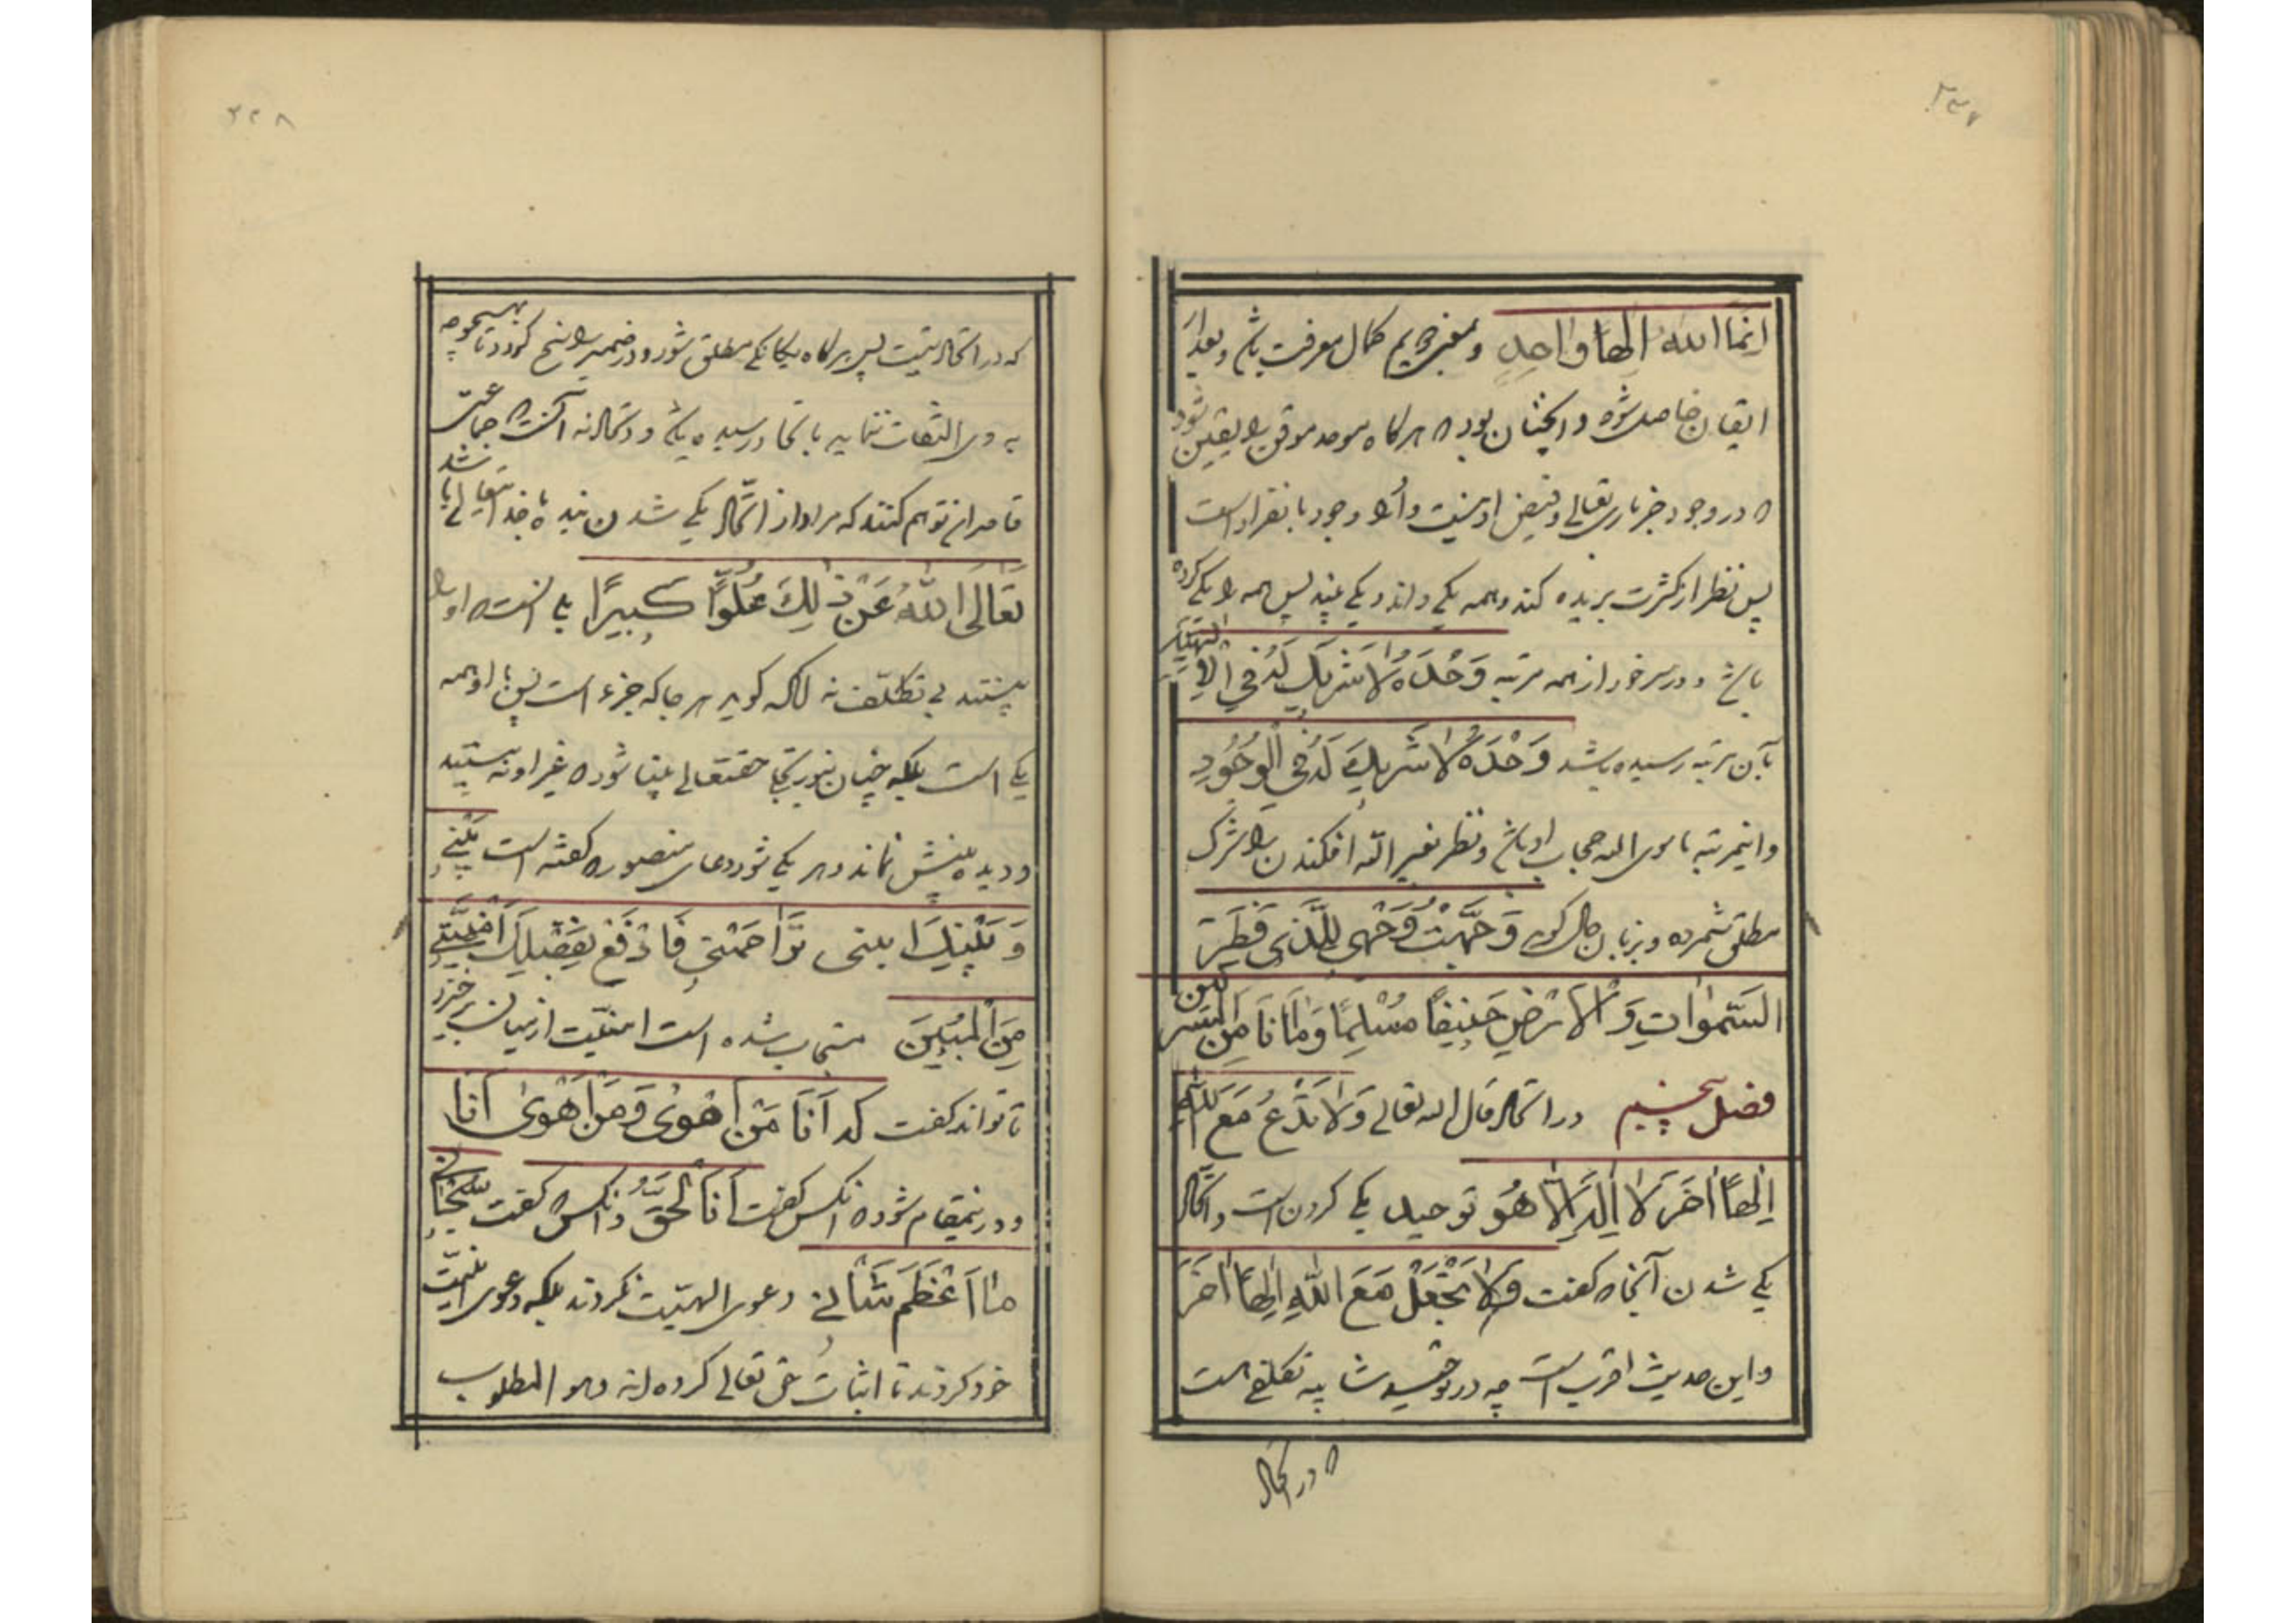 ۲۳۷
انما الله الها واحد و بمعنی سیم کمال معرفت باشد و بعد از
ایقان حاصل شود و آنچنان بود که هر گاه موحد موقن را یقین شود
که در وجود جز باری تعالی و فیض او نیست و او را وجود بانفراد است
پس نظر از کثرت بریده کند و همه یکی داند و یکی بیند پس همه را یکی کرده
باشد و در سر خود از همه مرتبه وَحْدَهُ لَا شَرِيكَ لَهُ فِي الْإِلٰهِيَّةِ
بآن مرتبه رسیده باشد وَحْدَهُ لَا شَرِيكَ لَهُ فِي الْوُجُودِ
و اینمرتبه ما سوی الله حجاب او باشد و نظر بغیر الله افکندن را شرک
مطلق شمرده و بزبان حال گوید وَجَّهْتُ وَجْهِيَ لِلَّذِي فَطَرَ
السَّمٰوَاتِ وَالْأَرْضِ حَنِيفًا مُسْلِمًا وَمَا أَنَا مِنَ الْمُشْرِكِينَ
فصل پنجم در اتحاد قال الله تعالی وَلَا تَدْعُ مَعَ اللَّهِ
إِلٰهًا آخَرَ لَا إِلٰهَ إِلَّا هُوَ توحید یکی کردن است و اتحاد
یکی شدن آنجا که گفت وَلَا تَجْعَلْ مَعَ اللَّهِ إِلٰهًا آخَرَ
و این حدیث اقرب است چه در توحید شایبه تکلفی است
که در اتحاد
۲۳۸
که در اتحاد نیست پس هر گاه یگانگی مطلق شود و در ضمیر راسخ گردد تا بهیچوجه
به دوی التفات ننماید باتحاد رسیده باشد و اتحاد نه آنست که جماعتی
قاصران توهم کنند که مراد از اتحاد یکی شدن بنده با خدا تعالی باشد
تَعَالَى اللَّهُ عَنْ ذٰلِكَ عُلُوًّا كَبِيرًا بل آنست که او را
بینند بی تکلف نه آنکه گوید هر چه که جزء است پس با او همه
یکی است بلکه چنان بنور تجلی حقتعالی بینا شود که غیر او نه بینند
و دیده و بینش نماند و هر یکی شود دعای منصور که گفته است بَيْنِي
وَبَيْنَكَ إِنِّيٌّ يُزَاحِمُنِي فَارْفَعْ بِفَضْلِكَ إِنِّيَّتِي
مِنَ الْبَيْنِ مستجاب شده است انیت از میان برخیزد
تا تواند گفت که أَنَا مَنْ أَهْوىٰ وَمَنْ أَهْوىٰ أَنَا
و در اینمقام شود که آنکس گفت أَنَا الْحَقُّ و آنکس که گفت سُبْحَانِي
مَا أَعْظَمَ شَأْنِي دعوی الهیت نکردند بلکه دعوی نفی انیت
خود کردند تا اثبات حق تعالی کرده اند و هو المطلوب